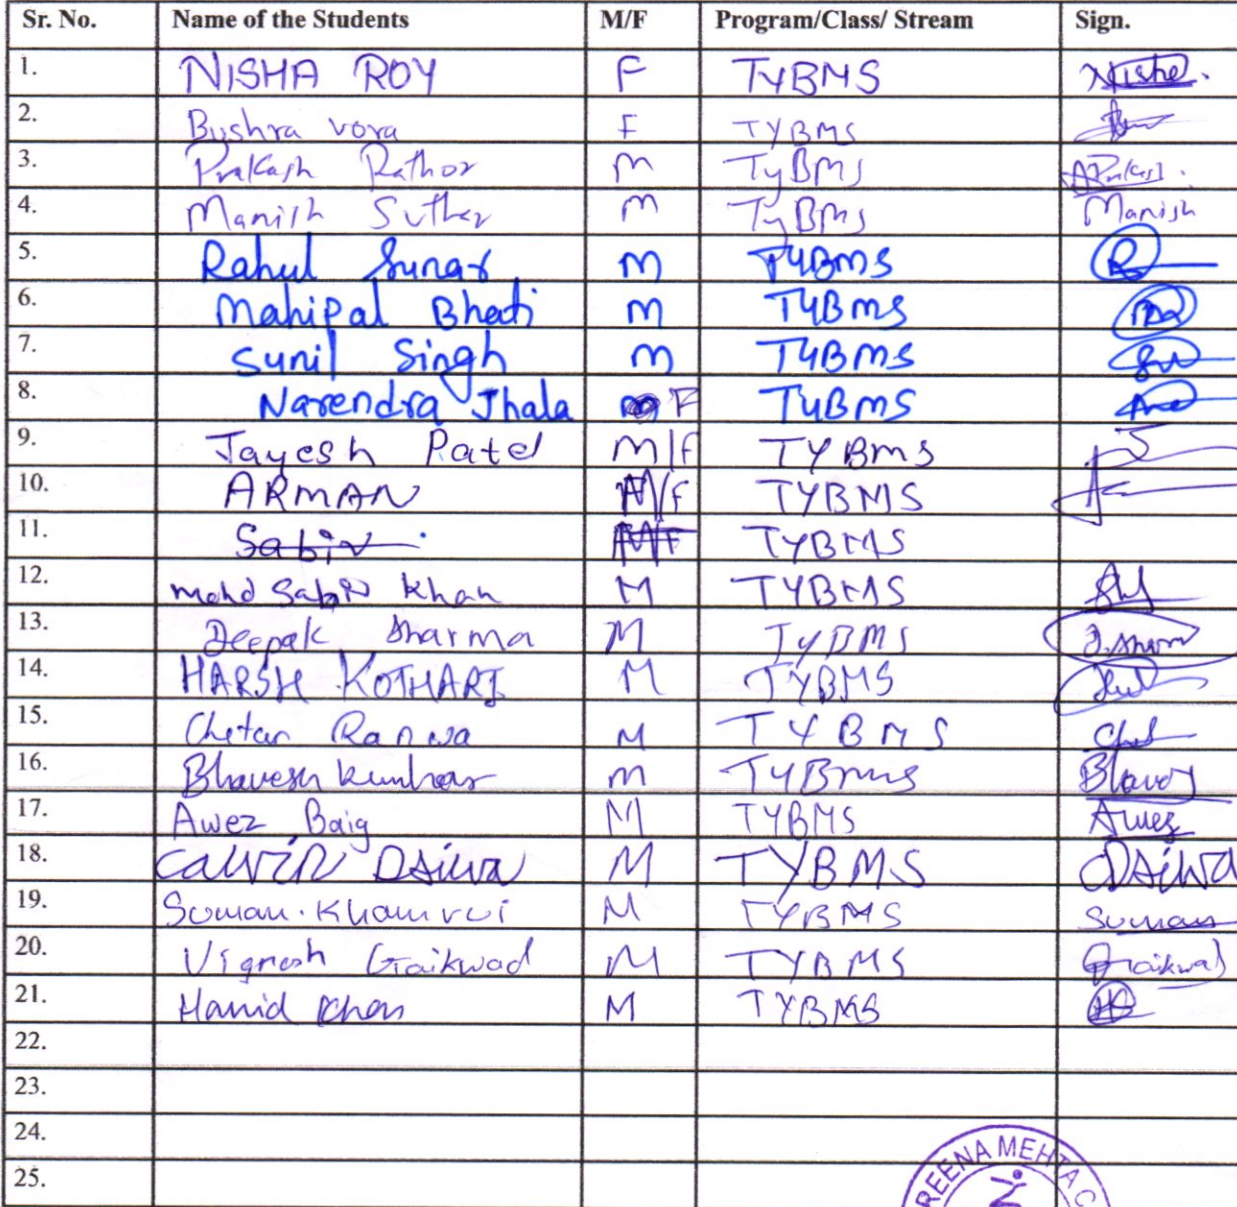 Sr. No. Name of the Students M/F Program/Class/ Stream Sign.
1. NISHA ROY F TYBMS Nisha.
2. Bushra vora F TYBMS
3. Prakash Rathor M TyBMS
4. Manish Suthar M TyBMS Manish
5. Rahul Sunar M TYBMS R
6. Mahipal Bhati M TYBMS
7. Sunil Singh M TYBMS
8. Narendra Jhala F TYBMS
9. Jayesh Patel M/F TYBMS
10. ARMAN M/F TYBMS
11. Sabir M/F TYBMS
12. Mohd Sabir Khan M TYBMS
13. Deepak Sharma M TYBMS
14. HARSH KOTHARI M TYBMS
15. Chetan Ranwa M TYBMS
16. Bhavesh Kumhar M TYBMS
17. Awez Baig M TYBMS Awez
18. CALVIN DSilva M TYBMS DSilva
19. Suman. M TYBMS Suman
20. Vignesh Gaikwad M TYBMS Gaikwad
21. Hamid Khan M TYBMS
22.
23.
24.
25.
REENA MEHTA C